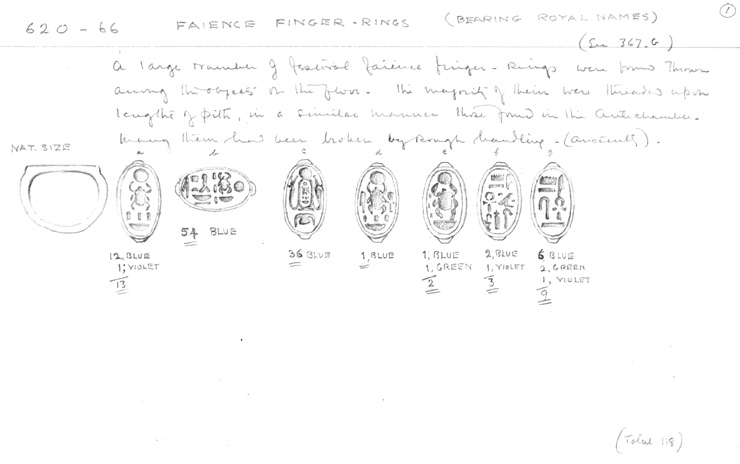 1
620 - 66 FAIENCE FINGER-RINGS (BEARING ROYAL NAMES)
(See 367.G)
A large number of festival faience finger-rings were found thrown
among the objects on the floor. The majority of them were threaded upon
lengths of pith, in a similar manner those found in the Antechamber.
Many them had been broken by rough handling - (anciently).
NAT. SIZE a b c d e f g
54 BLUE
12, BLUE 36 BLUE 1, BLUE 1, BLUE 2, BLUE 6 BLUE
1; VIOLET 1, GREEN 1, VIOLET 2, GREEN
13 2 3 1, VIOLET
9
(Total 118)